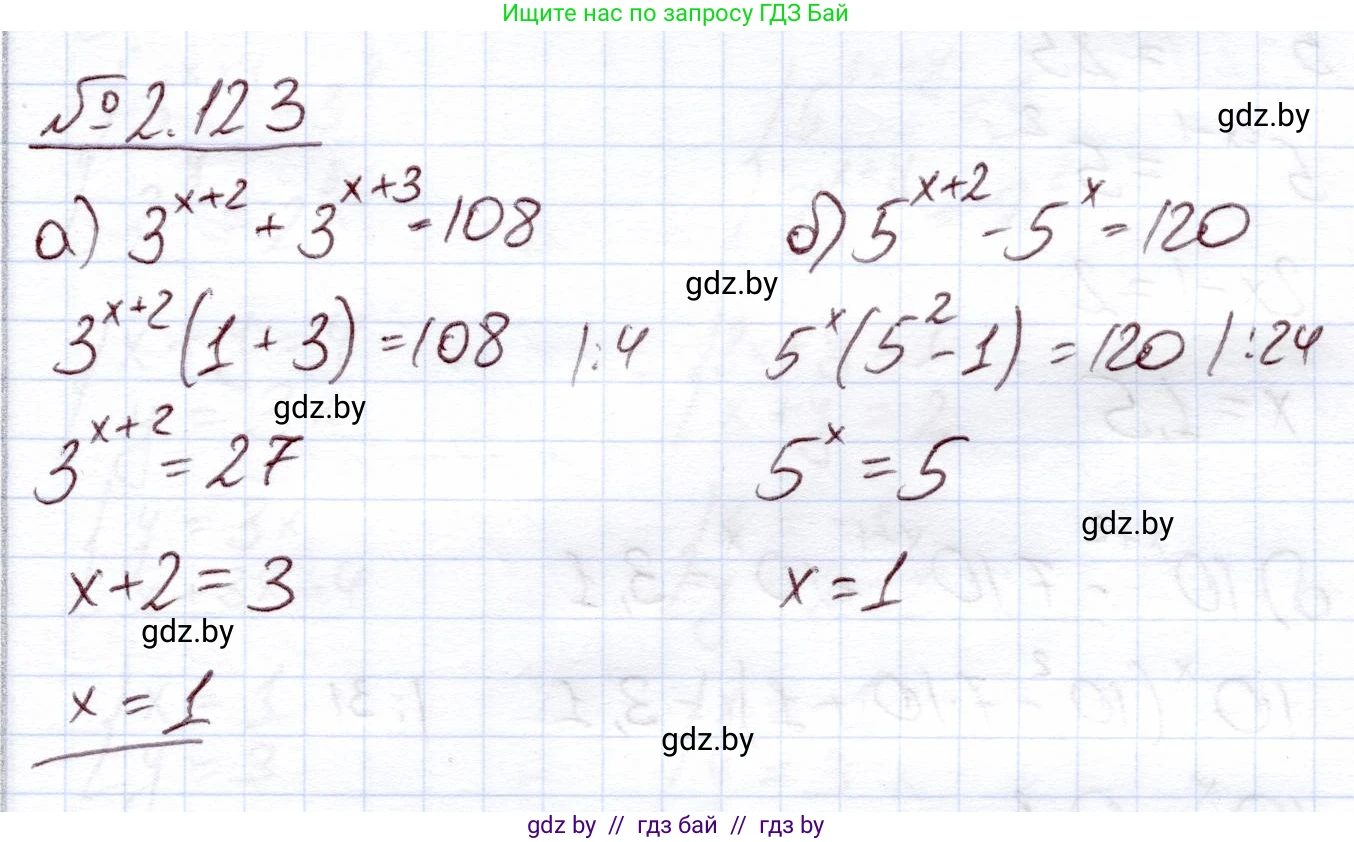 Ищите нас по запросу ГДЗ Бай
№ 2.123
gdz.by
а) 3^{x+2} + 3^{x+3} = 108
б) 5^{x+2} - 5^x = 120
gdz.by
3^{x+2} (1 + 3) = 108 |:4
5^x (5^2 - 1) = 120 |:24
gdz.by
3^{x+2} = 27
5^x = 5
gdz.by
x + 2 = 3
x = 1
gdz.by
x = 1
gdz.by
gdz by // гдз бай // гдз by